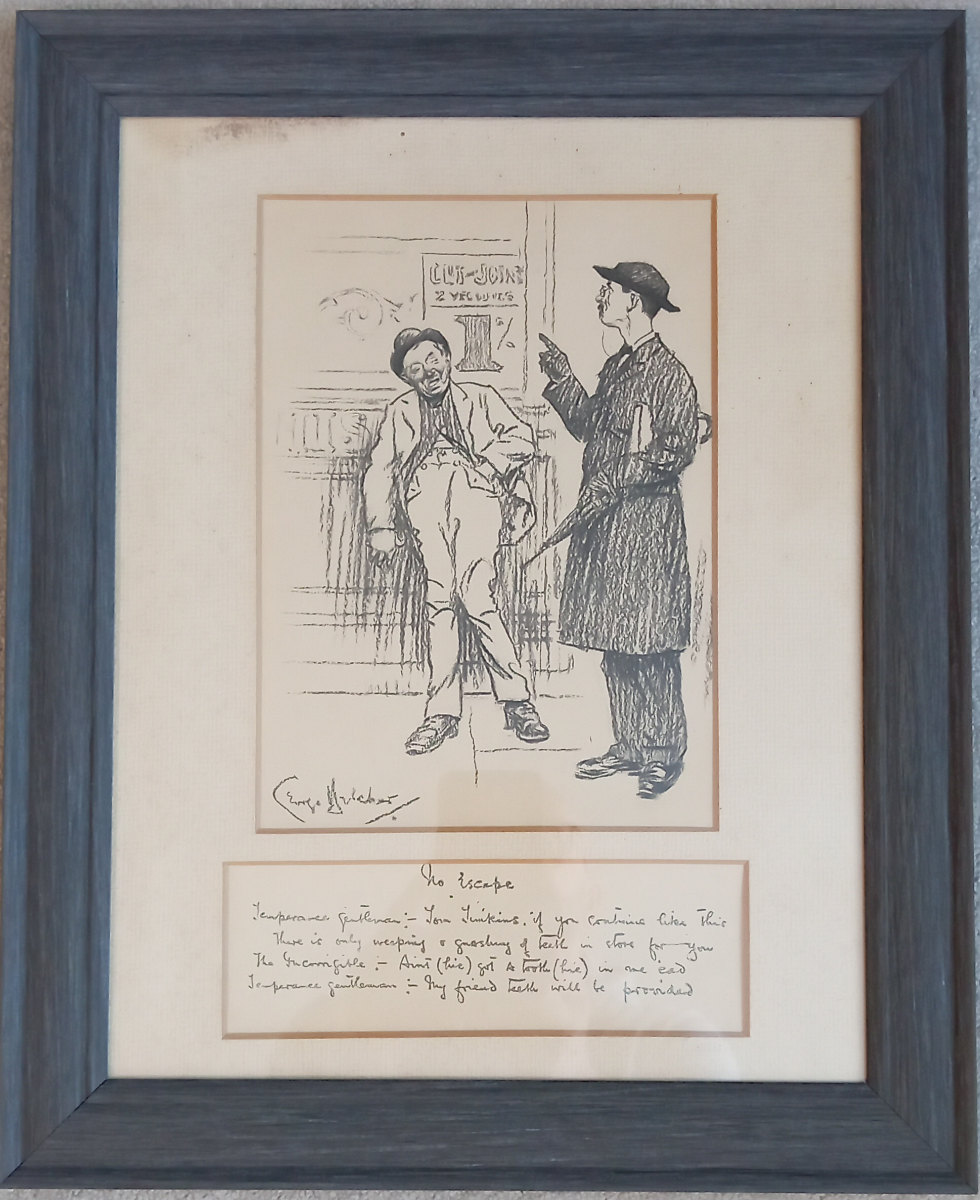 CUT-JOINT
2 VEG
1/-
George Belcher
No Escape
Temperance gentleman :- Tom Timkins, if you continue like this
there is only weeping & gnashing of teeth in store for you
The Incorrigible :- Aint (hic) got a tooth (hic) in me 'ead
Temperance gentleman :- My friend teeth will be provided